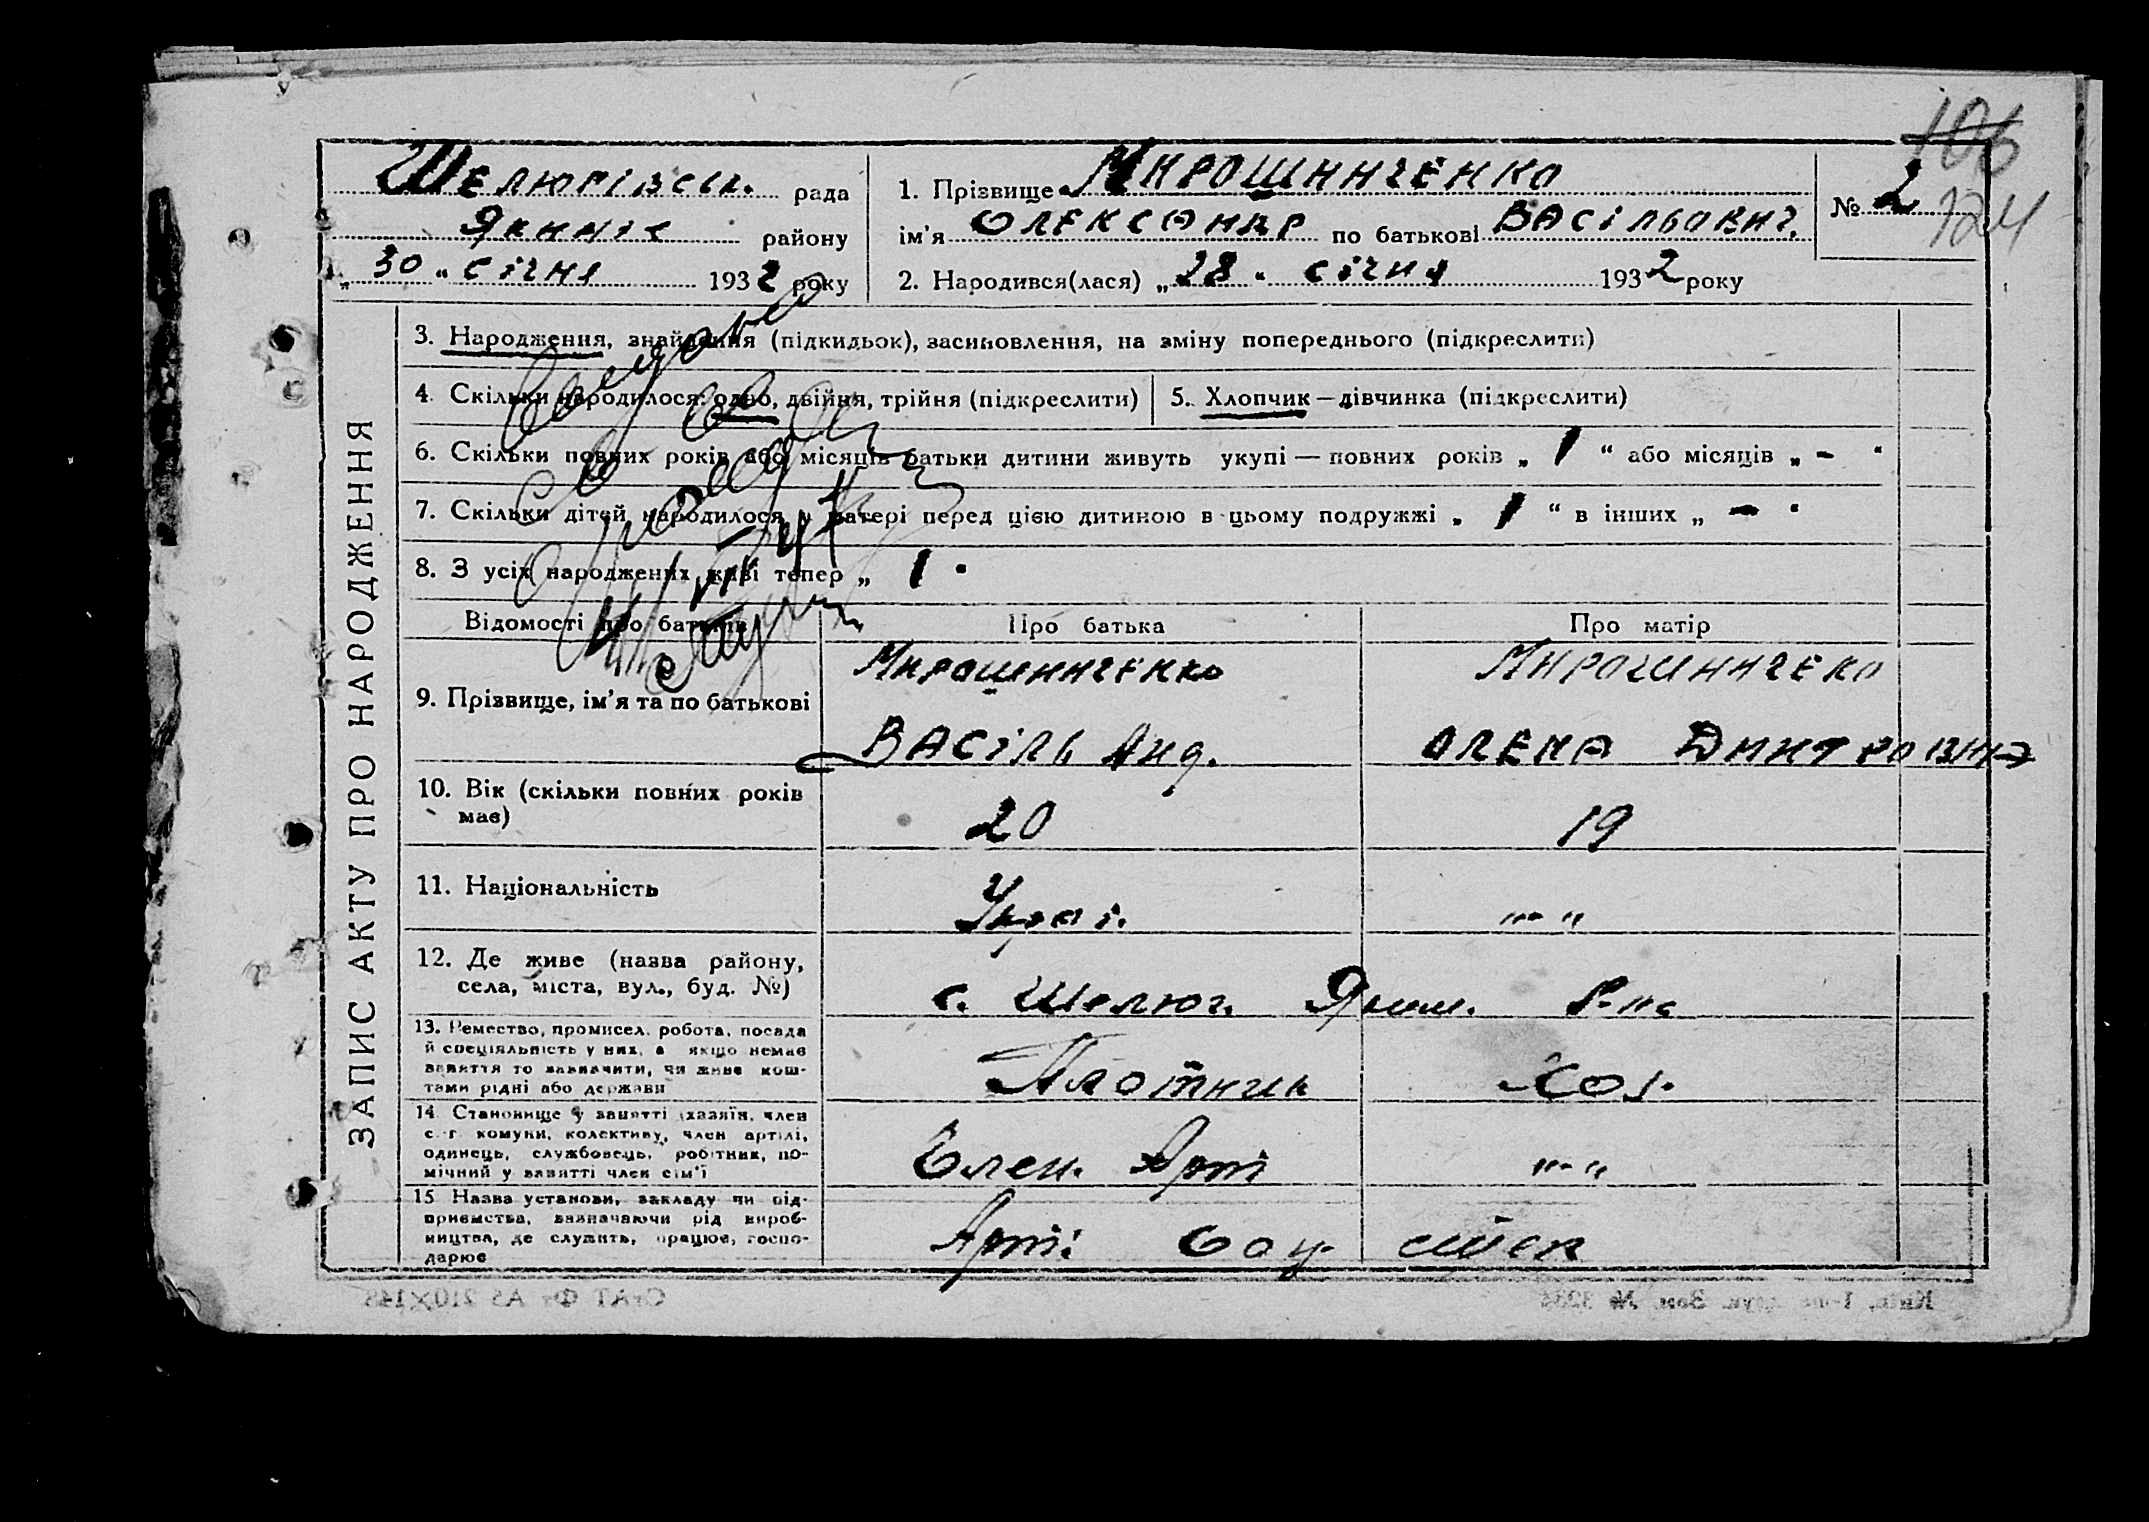 106
Шелюгівськ. рада
1. Прізвище Мирошниченко
№ 2
124
Якиміс району
ім'я Олександр по батькові Васільович.
„ 30 “ січня 1932 року
2. Народився(лася) „ 28 “ січня 1932 року
ЗАПИС АКТУ ПРО НАРОДЖЕННЯ
3. Народження, знайдення (підкидьок), засиновлення, на зміну попереднього (підкреслити)
4. Скільки народилося: одно, двійня, трійня (підкреслити)
5. Хлопчик — дівчинка (підкреслити)
6. Скільки повних років або місяців батьки дитини живуть укупі — повних років „ 1 “ або місяців „ - “
7. Скільки дітей народилося у матері перед цією дитиною в цьому подружжі „ 1 “ в інших „ - “
8. З усіх народжених живі тепер „ 1 “
Відомості про батьків
Про батька
Про матір
9. Прізвище, ім'я та по батькові
Мирошниченко
Васіль Анд.
Мирошниченко
Олена Дмитровна
10. Вік (скільки повних років
має)
20
19
11. Національність
Украї.
„-“
12. Де живе (назва району,
села, міста, вул., буд. №)
с. Шелюг. Яким. р-на
13. Ремество, промисел, робота, посада
й спеціяльність у них, а якщо немає
заняття то зазначити, чи живе кош-
тами рідні або держави
Плотник
Хоз.
14. Становище у занятті (хазяїн, член
с.-г. комуни, колективу, член артілі,
одинець, службовець, робітник, по-
мічний у занятті член сім'ї
Член. Арт
„-“
15. Назва установи, закладу чи під-
приємства, зазначаючи рід вироб-
ництва, де служить, працює, госпо-
дарює
Арті Соц. степ
СтАТ Фт А5 210×148